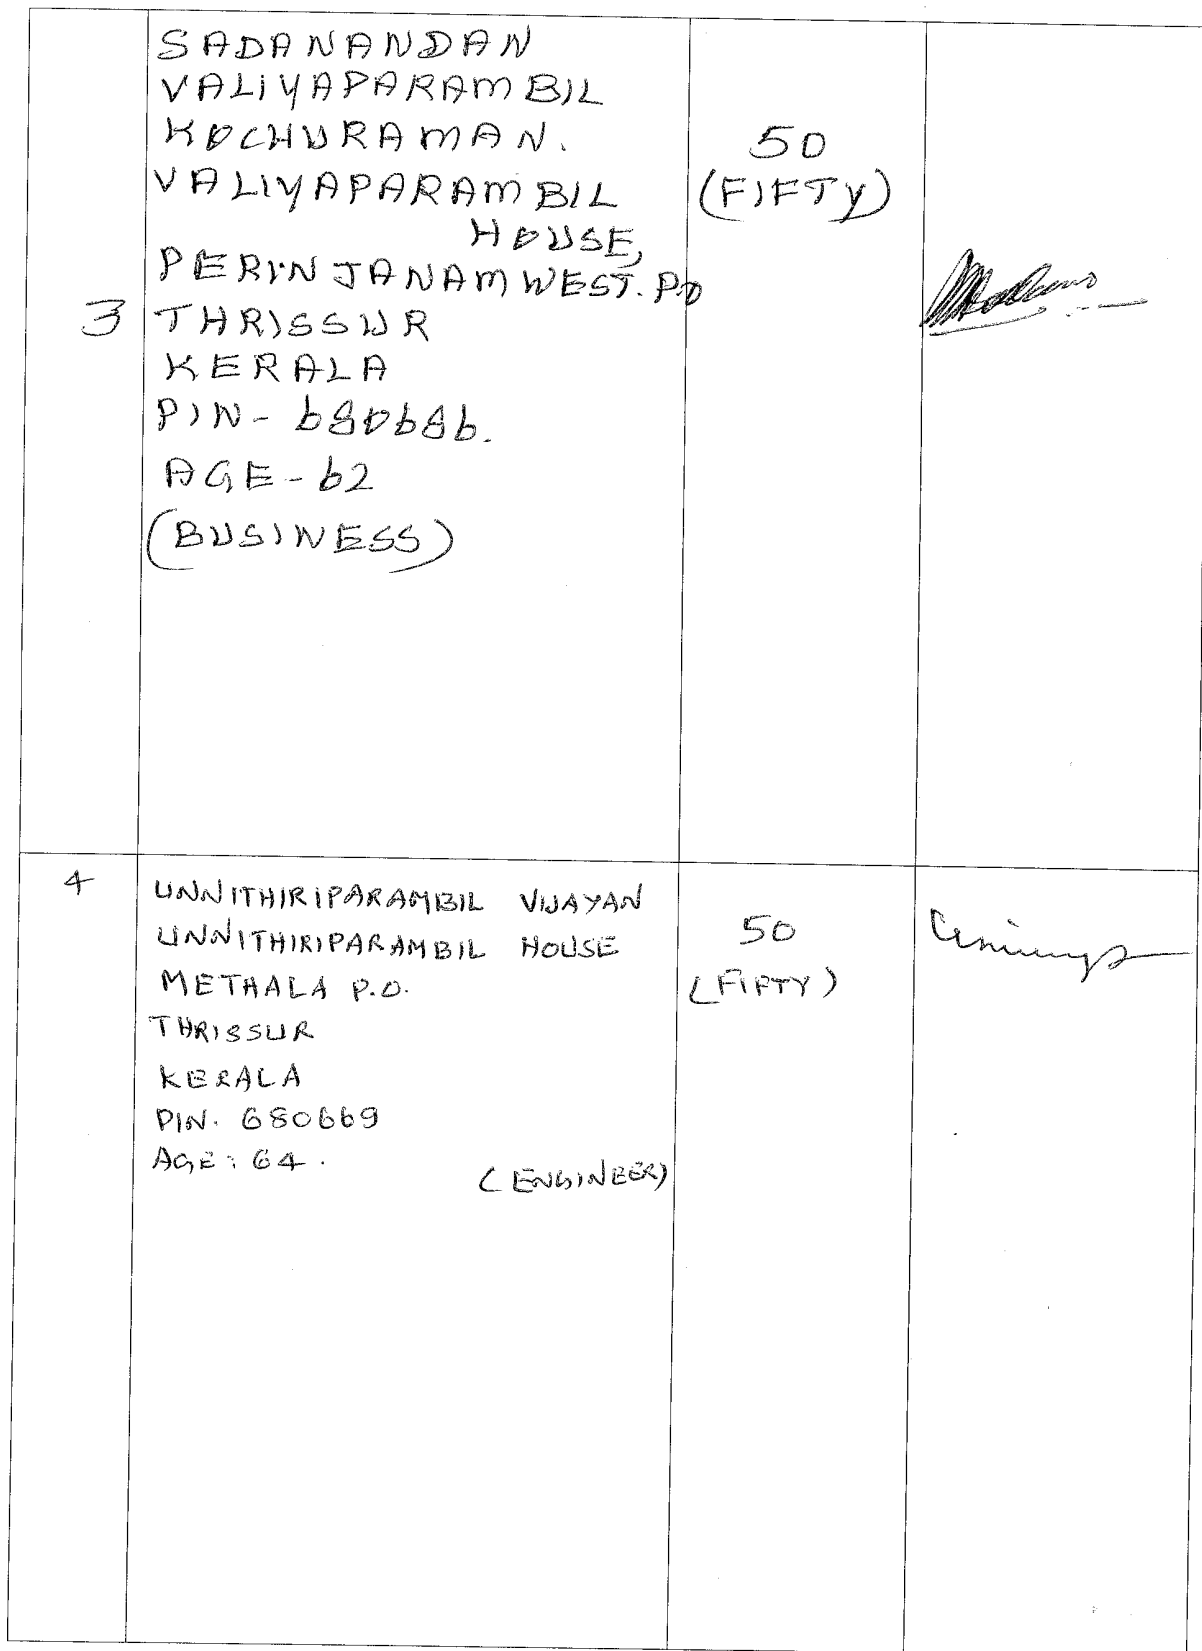 SADANANDAN
VALIYAPARAMBIL
KOCHURAMAN.
VALIYAPARAMBIL
HOUSE,
PERINJANAM WEST. P.O
3 THRISSUR
KERALA
PIN- 680686.
AGE-62
(BUSINESS)
50
(FIFTY)
4
UNNITHIRIPARAMBIL VIJAYAN
UNNITHIRIPARAMBIL HOUSE
METHALA P.O.
THRISSUR
KERALA
PIN. 680669
AGE: 64.
(ENGINEER)
50
(FIFTY)